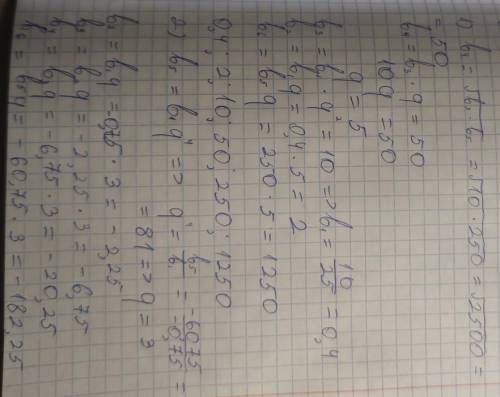 1) b₄ = √b₃·b₅ = √10·250 = √2500 =
= 50
b₄ = b₃·q = 50
10q = 50
q = 5
b₃ = b₁·q² = 10 => b₁ = 10/25 = 0,4
b₂ = b₁q = 0,4·5 = 2
b₆ = b₅q = 250·5 = 1250
0,4; 2; 10; 50; 250; 1250
2) b₅ = b₁q⁴ => q⁴ = b₅/b₁ = -60,75/-0,75 =
= 81 => q = 3
b₂ = b₁q = -0,75·3 = -2,25
b₃ = b₂q = -2,25·3 = -6,75
b₄ = b₃q = -6,75·3 = -20,25
b₆ = b₅q = -60,75·3 = -182,25